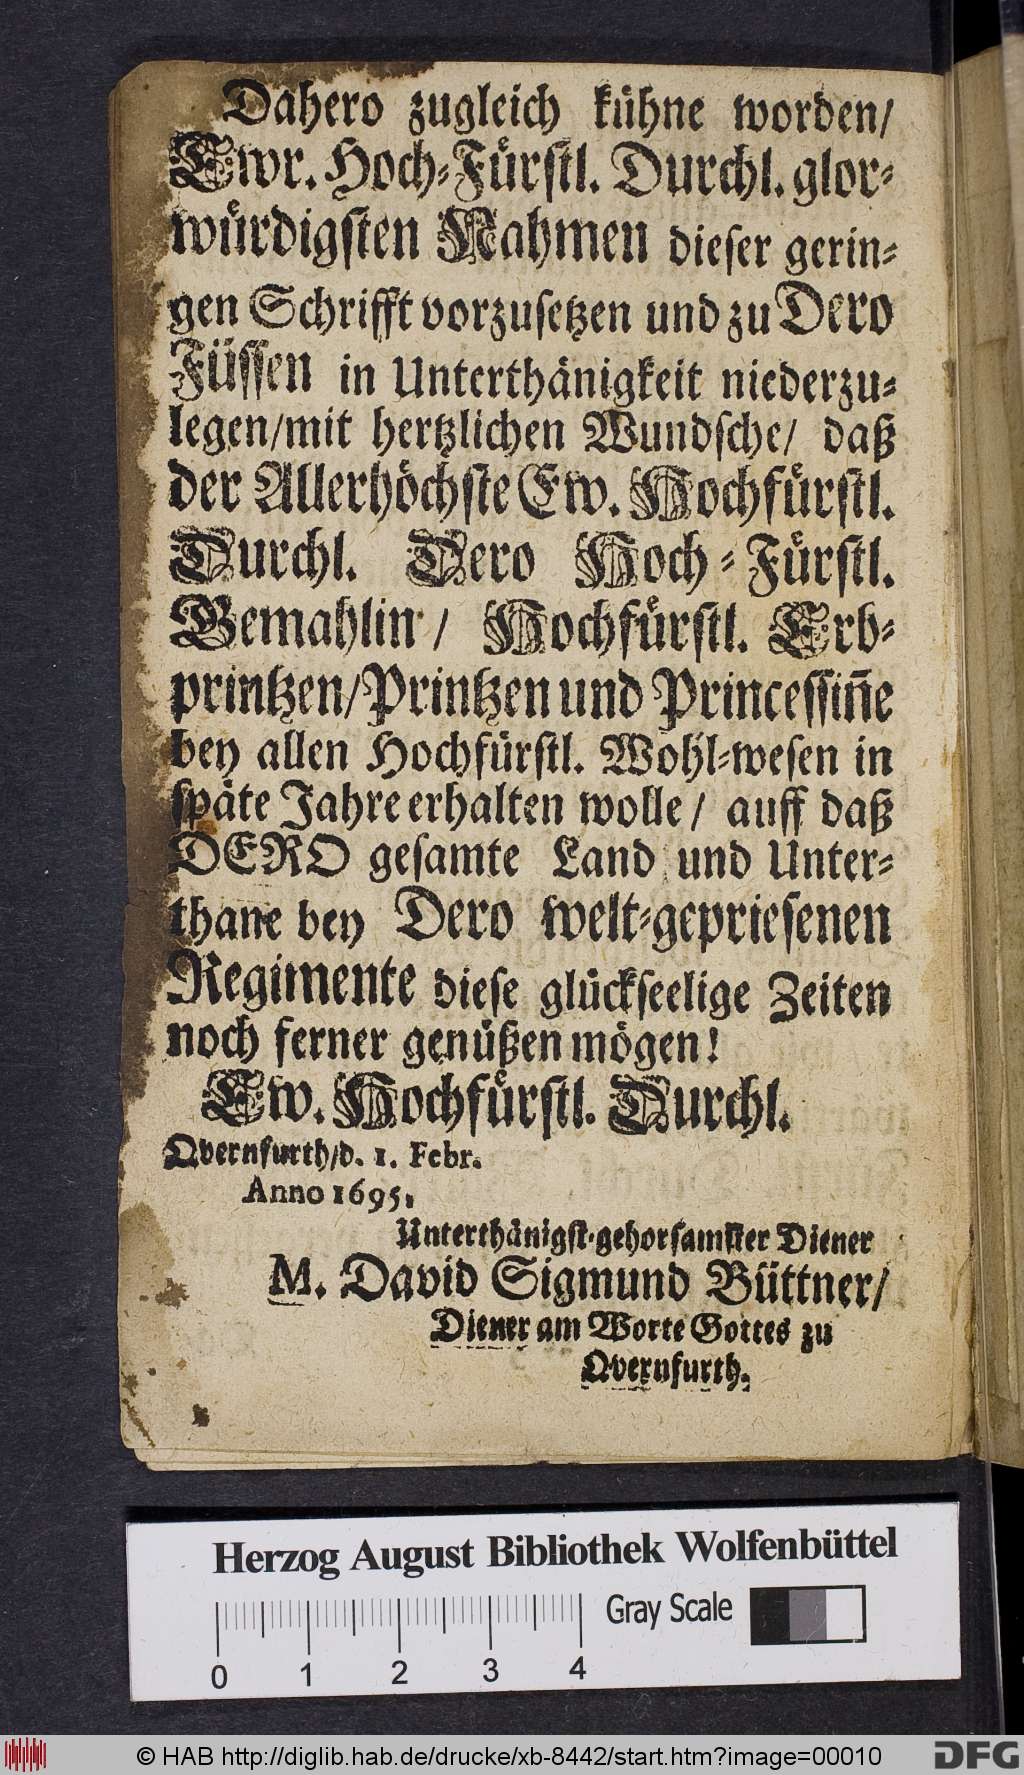 Dahero zugleich kühne worden/
Ewr. Hoch-Fürstl. Durchl. glor-
würdigsten Nahmen dieser gerin-
gen Schrifft vorzusetzen und zu Dero
Füssen in Unterthänigkeit niederzu-
legen/mit hertzlichen Wundsche/ daß
der Allerhöchste Ew. Hochfürstl.
Durchl. Dero Hoch-Fürstl.
Gemahlin/ Hochfürstl. Erb-
printzen/Printzen und Princessiñe
bey allen Hochfürstl. Wohl-wesen in
späte Jahre erhalten wolle/ auff daß
DERO gesamte Land und Unter-
thane bey Dero welt-gepriesenen
Regimente diese glückseelige Zeiten
noch ferner genüßen mögen!
Ew. Hochfürstl. Durchl.
Qvernfurth/d. 1. Febr.
Anno 1695.
Unterthänigst-gehorsamster Diener
M. David Sigmund Büttner/
Diener am Worte Gottes zu
Qvernfurth.
Herzog August Bibliothek Wolfenbüttel
Gray Scale
0 1 2 3 4
© HAB http://diglib.hab.de/drucke/xb-8442/start.htm?image=00010
DFG